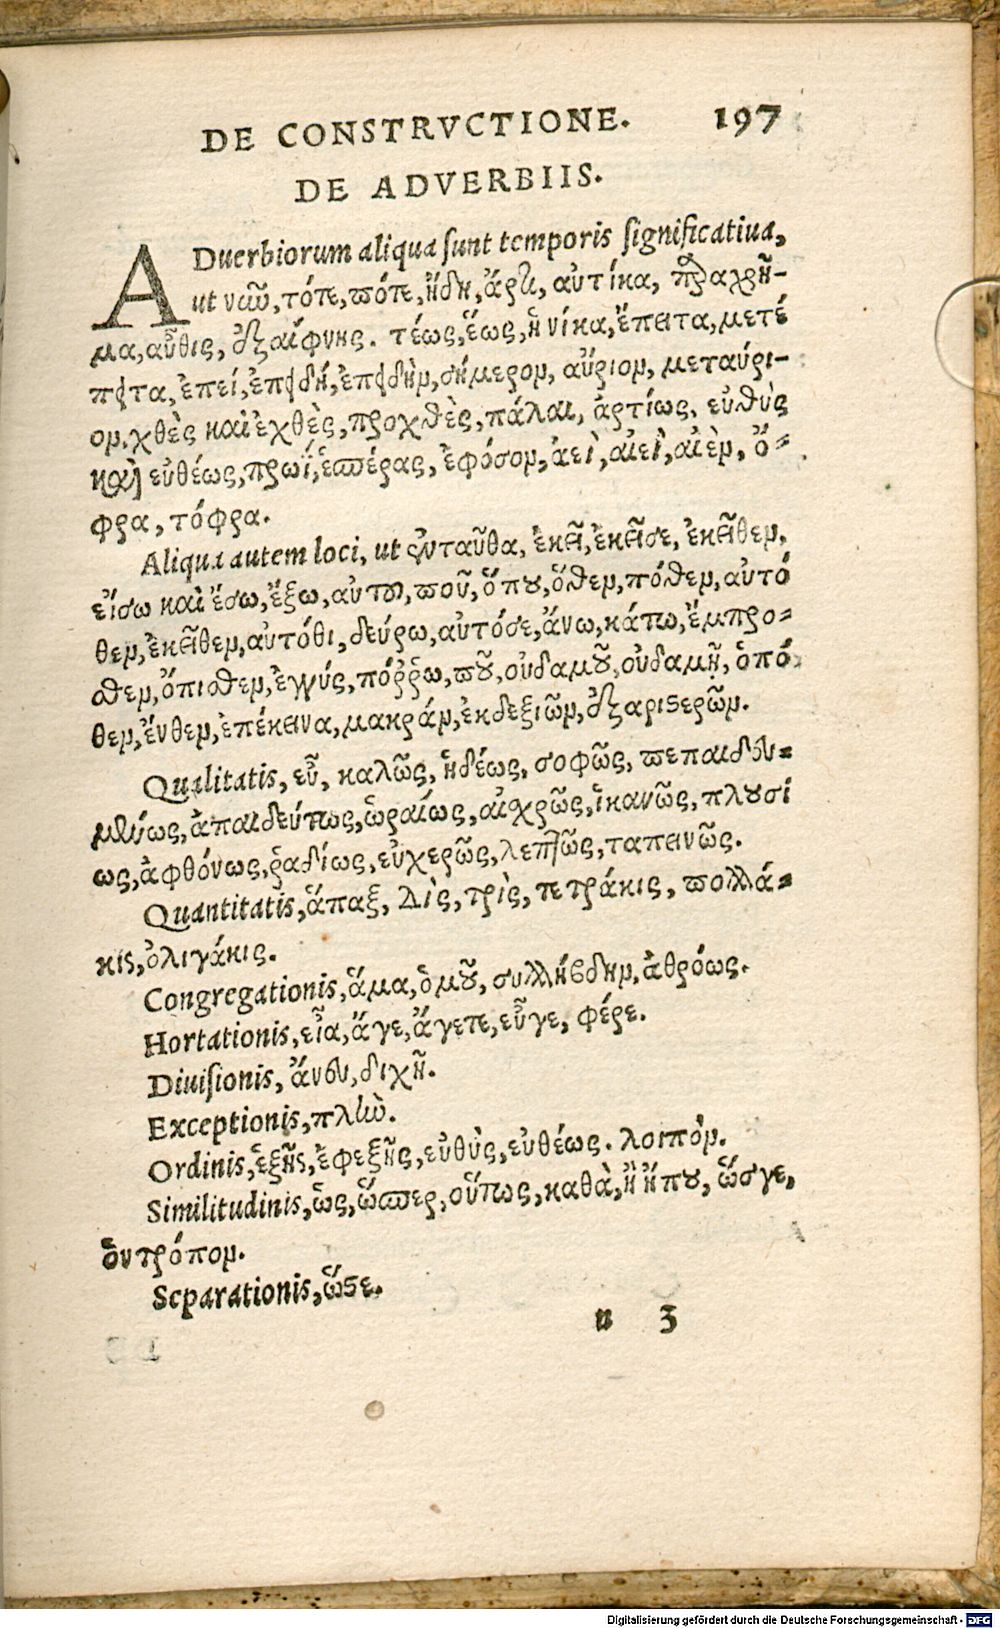 DE CONSTRVCTIONE. 197
DE ADVERBIIS.
ADuerbiorum aliqua sunt temporis significatiua,
ut νῦν, τότε, πότε, ἤδη, ἄρτι, αὐτίκα, παραχρῆ-
μα, αὖθις, ἐξαίφνης. τέως, ἕως, ἡνίκα, ἔπειτα, μετέ
πειτα, ἐπεί, ἐπειδή, ἐπειδὴν, σήμερον, αὔριον, μεταύρι-
ον, χθὲς καὶ ἐχθὲς, προχθὲς, πάλαι, ἀρτίως, εὐθὺς
καὶ εὐθέως, πρωΐ, ἑσπέρας, ἐφόσον, ἀεὶ, αἰεὶ, αἰὲν, ὄ-
φρα, τόφρα.
Aliqua autem loci, ut ἐνταῦθα, ἐκεῖ, ἐκεῖσε, ἐκεῖθεν,
εἴσω καὶ ἔσω, ἔξω, αὐτοῦ, ποῦ, ὅπου, ὅθεν, πόθεν, αὐτό
θεν, ἐκεῖθεν, αὐτόθι, δεύρω, αὐτόσε, ἄνω, κάτω, ἔμπρο-
σθεν, ὄπισθεν, ἐγγύς, πόῤῥω, ποῦ, οὐδαμοῦ, οὐδαμῆ, ὁπό
θεν, ἔνθεν, ἐπέκεινα, μακράν, ἐκδεξιῶν, ἐξαριστερῶν.
Qualitatis, εὖ, καλῶς, ἡδέως, σοφῶς, πεπαιδευ-
μένως, ἀπαιδεύτως, ὡραίως, αἰχρῶς, ἱκανῶς, πλουσί
ως, ἀφθόνως, ῥαδίως, εὐχερῶς, λεπτῶς, ταπεινῶς.
Quantitatis, ἅπαξ, Δὶς, τρὶς, τετράκις, πολλά-
κις, ὀλιγάκις.
Congregationis, ἅμα, ὁμοῦ, συλλήβδην, ἀθρόως.
Hortationis, εἶα, ἄγε, ἄγετε, εὖγε, φέρε.
Diuisionis, ἄνευ, διχῆ.
Exceptionis, πλὴν.
Ordinis, ἑξῆς, ἐφεξῆς, εὐθὺς, εὐθέως. λοιπόν.
Similitudinis, ὡς, ὥσπερ, οὕτως, καθὰ, ἢ ἤπου, ὥσγε,
ὃν τρόπον.
Separationis, ὥστε.
n 3
Digitalisierung gefördert durch die Deutsche Forschungsgemeinschaft - DFG